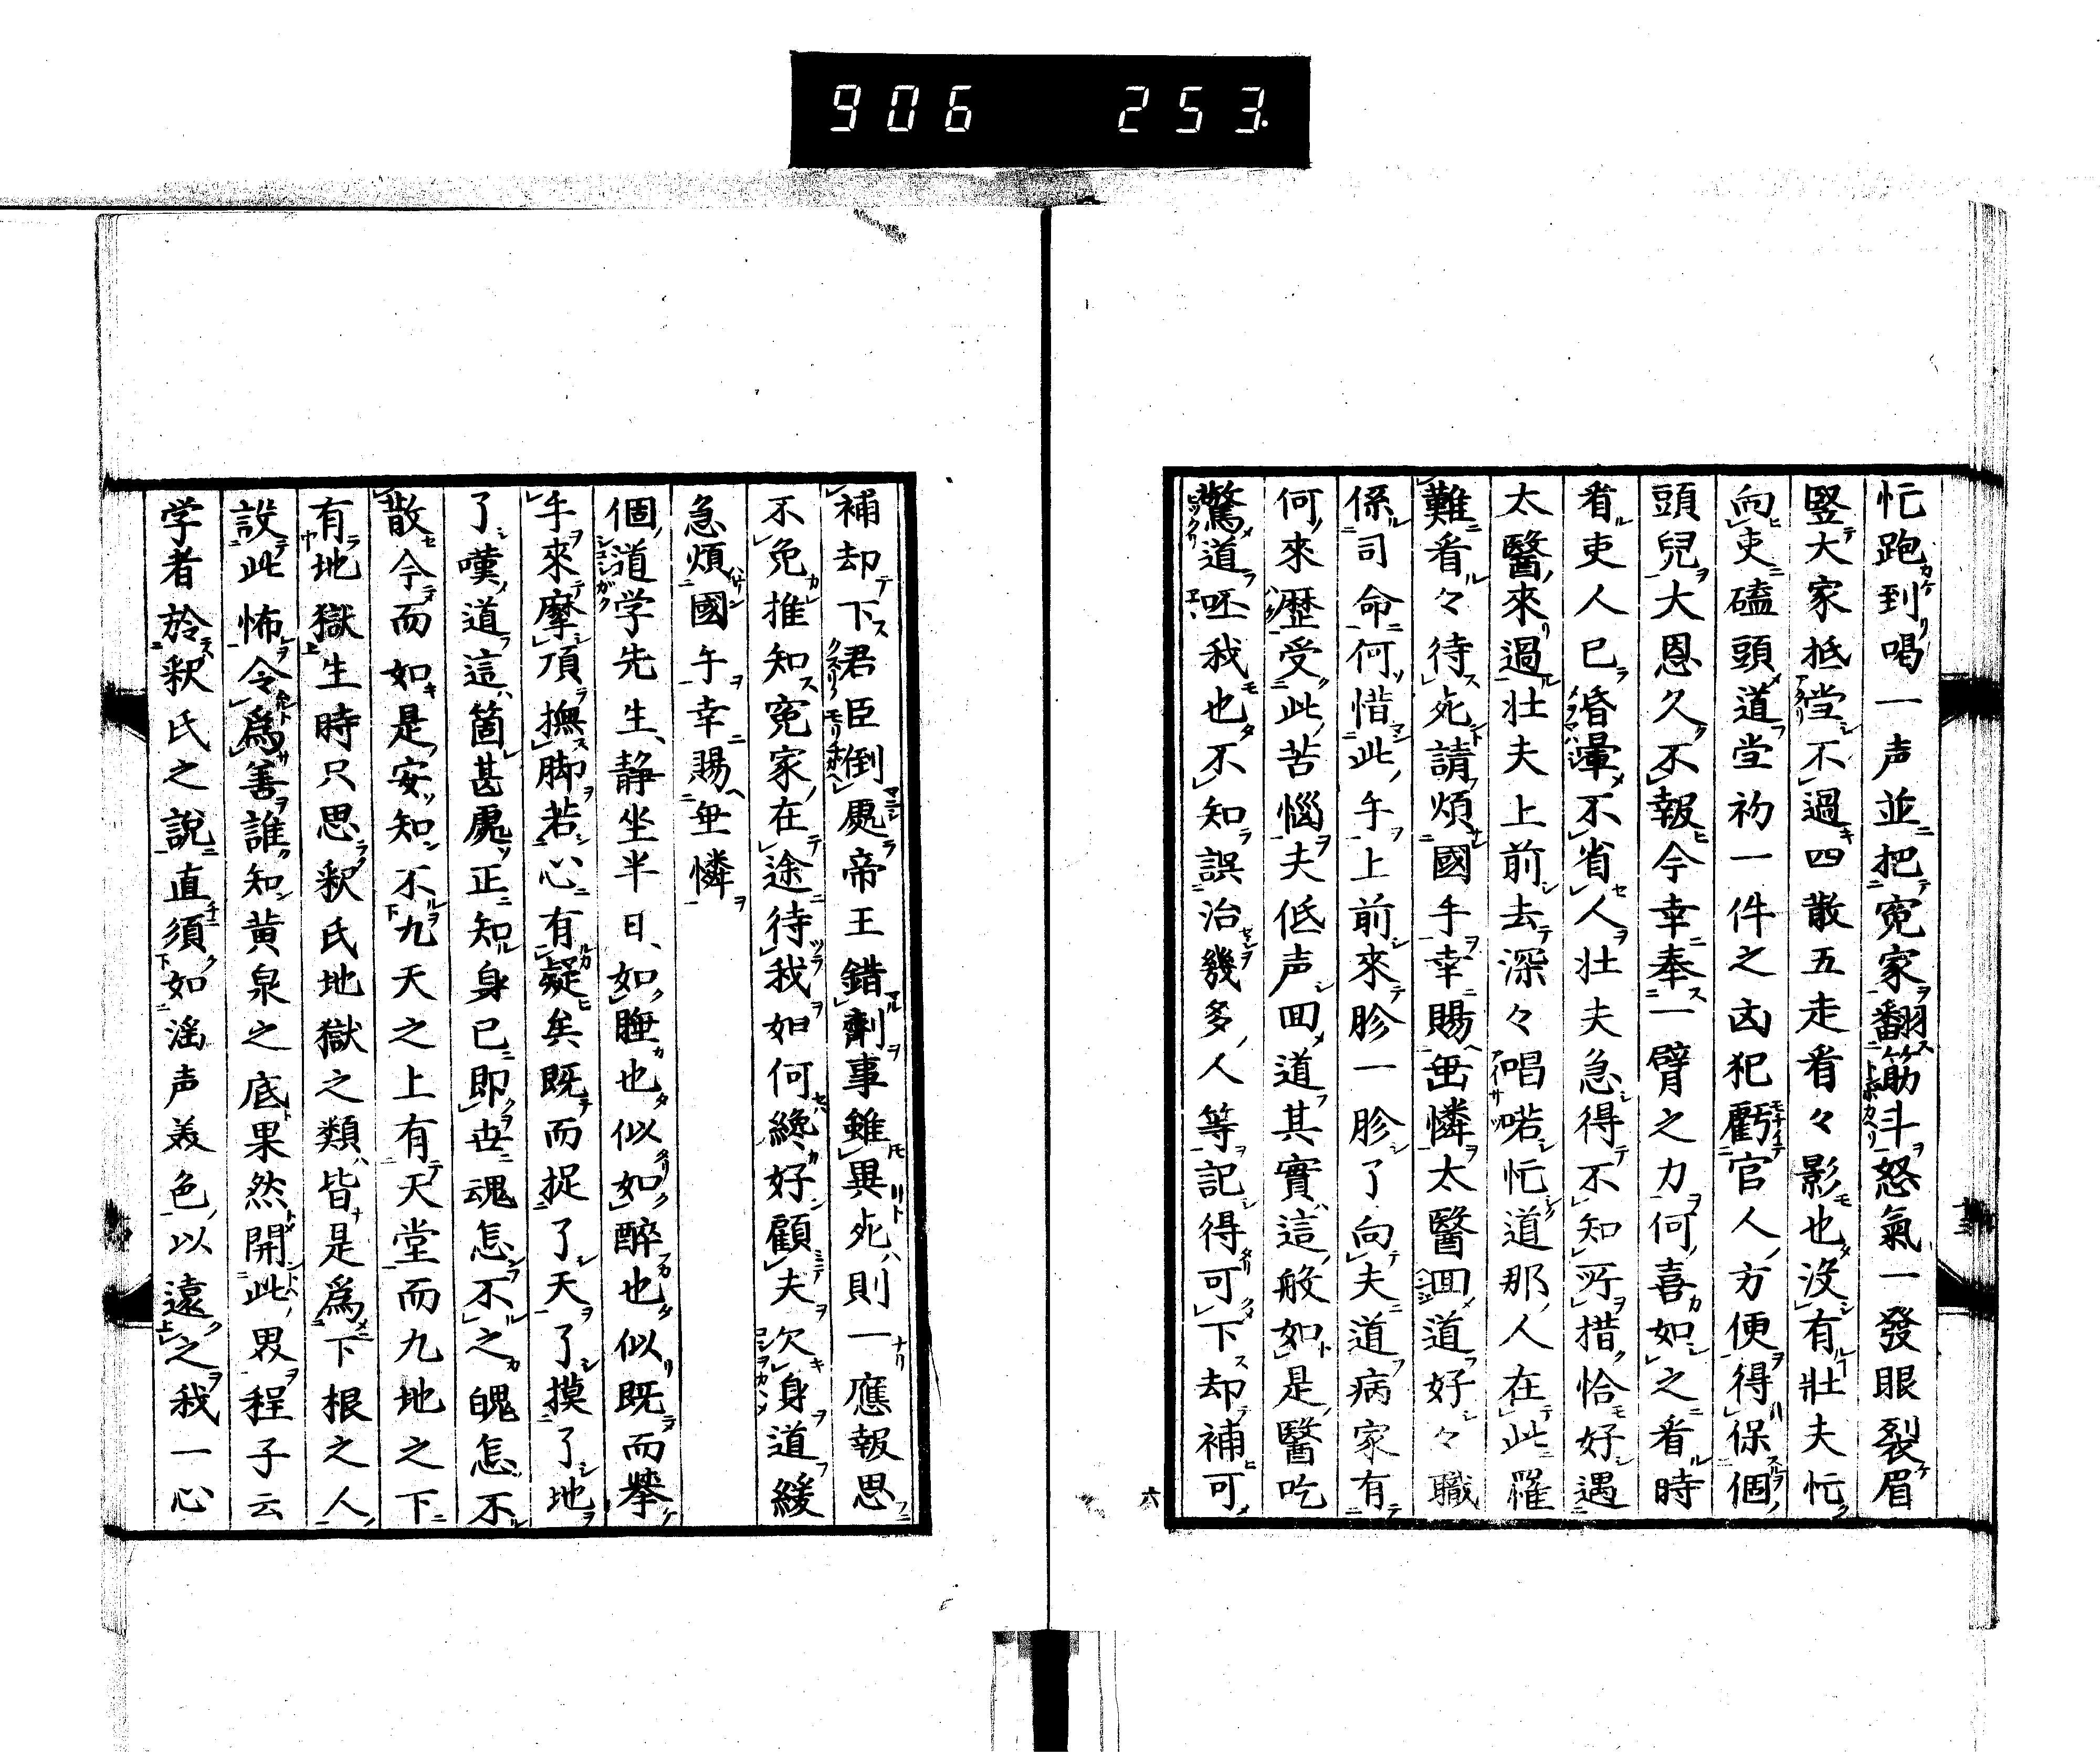 906 253
忙跑到喝一声並把寃家翻筋斗怒氣一發眼裂眉
竪大家抵堂不過四散五走看々影也没有壯夫忙
向吏磕頭道堂初一件之凶犯虧官人方便得保個
頭兒大恩久不報今幸奉一臂之力何喜如之看時
看吏人已昏暈不省人壮夫急得不知所措恰好遇
太醫來過壮夫上前去深々唱喏忙道那人在此罹
難看々待死請煩國手幸賜垂憐太醫回道好々職
係司命何惜此手上前來胗一胗了向夫道病家有
何來歴受此苦惱夫低声回道其實這般如是醫吃
驚道呸我也不知誤治幾多人等記得可下却補可
六
補却下君臣倒處帝王錯劑事雖異死則一應報思
不免推知寃家在途待我如何纔好顧夫欠身道緩
急煩國手幸賜垂憐
個道学先生静坐半日如睡也似如醉也似既而擧
手來摩頂撫脚若心有疑矣既而捉了天了摸了地
了嘆道這箇甚處正知身已即世魂怎不之魄怎不
散今而如是安知不九天之上有天堂而九地之下
有地獄生時只思釈氏地獄之類皆是爲下根之人
設此怖令爲善誰知黄泉之底果然開此界程子云
学者於釈氏之說直須如滛声美色以遠之我一心